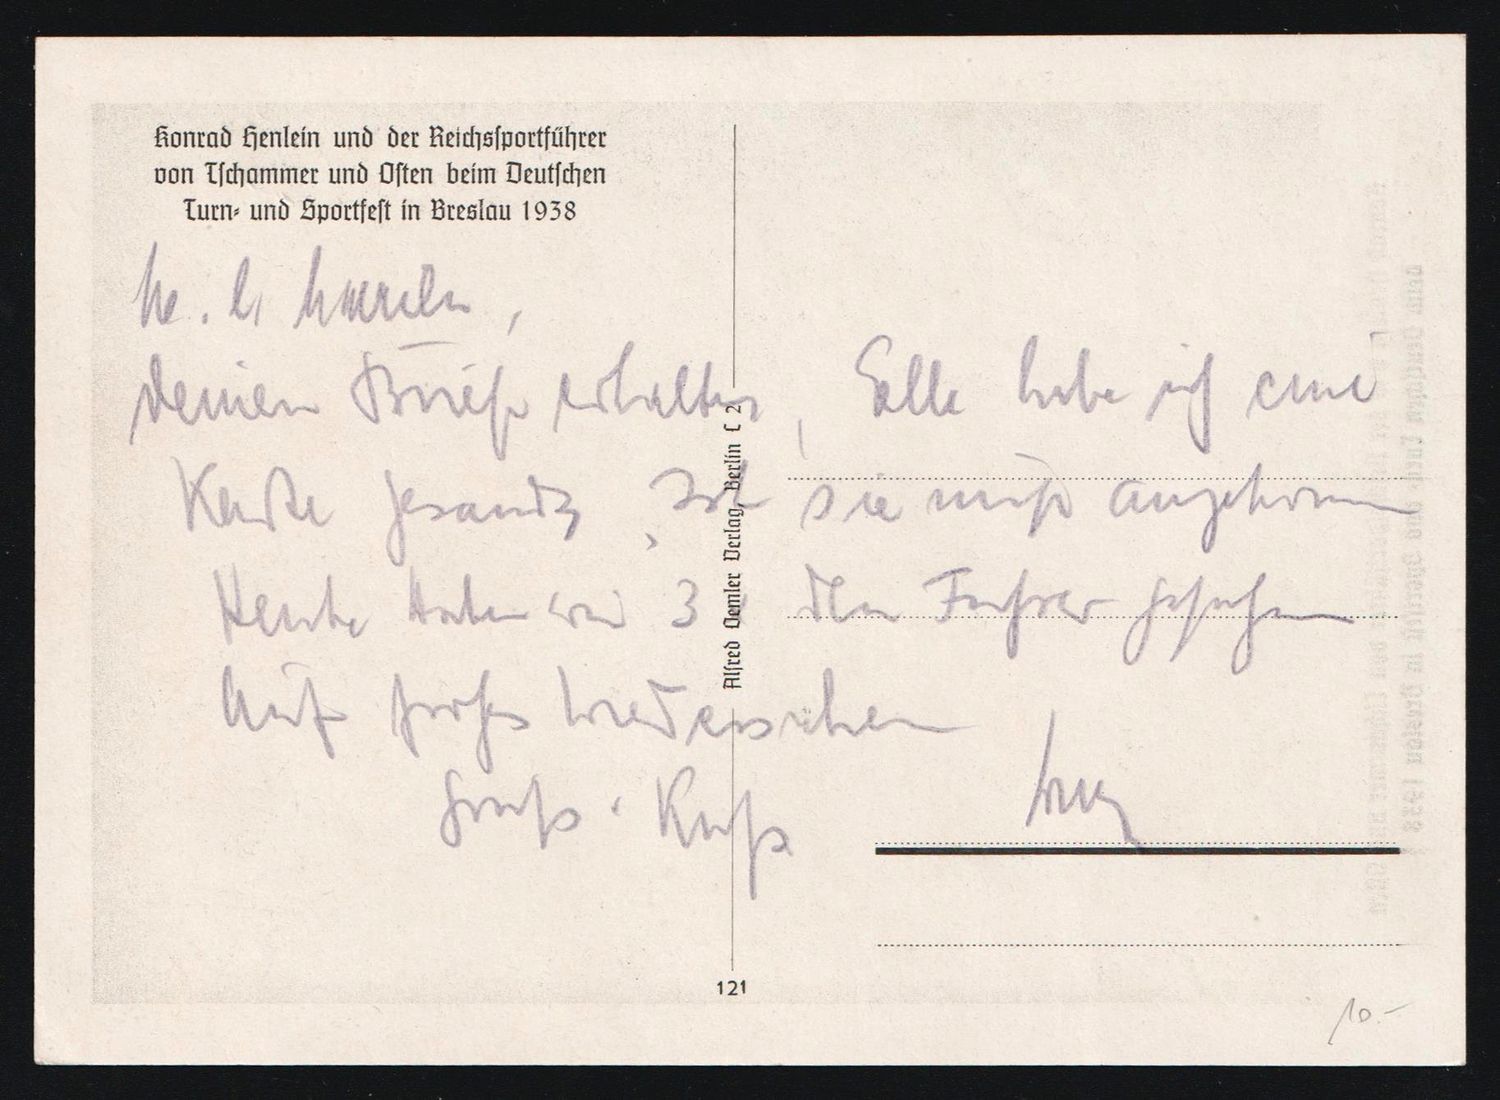 Konrad Henlein und der Reichssportführer
von Tschammer und Osten beim Deutschen
Turn- und Sportfest in Breslau 1938
M. l.
Deinen Brief erhalten, Elle habe ich eine
Karte gesandt, Ist sie nicht angekommen
Heute haben wir 3 x den Führer gesehen
Auf frohes Wiedersehen
Gruß + Kuß
Alfred Demler Verlag, Berlin C 2
121
10.-